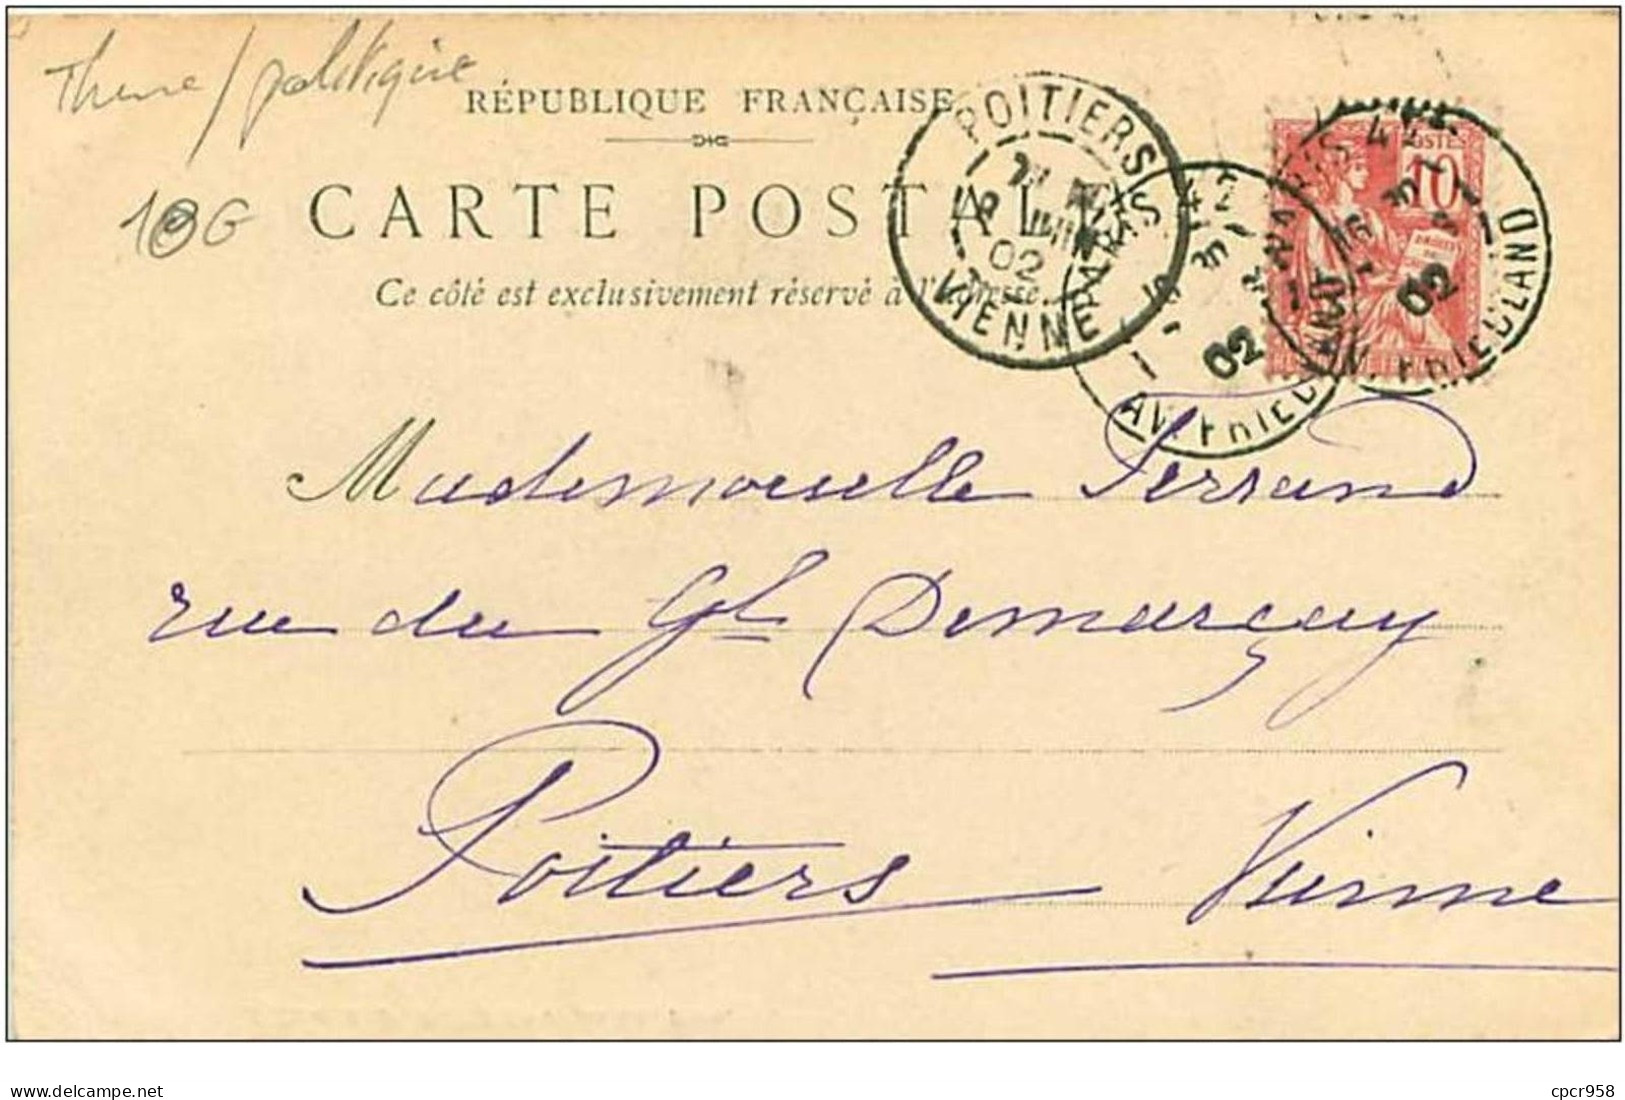 Theme / politique
RÉPUBLIQUE FRANÇAISE
CARTE POSTALE
Ce côté est exclusivement réservé à l'adresse.
POITIERS
02
VIENNE
PARIS 42
02
AV. FRIEDLAND
PARIS 42
02
AV. FRIEDLAND
POSTES
10
Mademoiselle Ferrand
rue du Gl Demarçay
Poitiers Vienne
www.delcampe.net
cpcr958